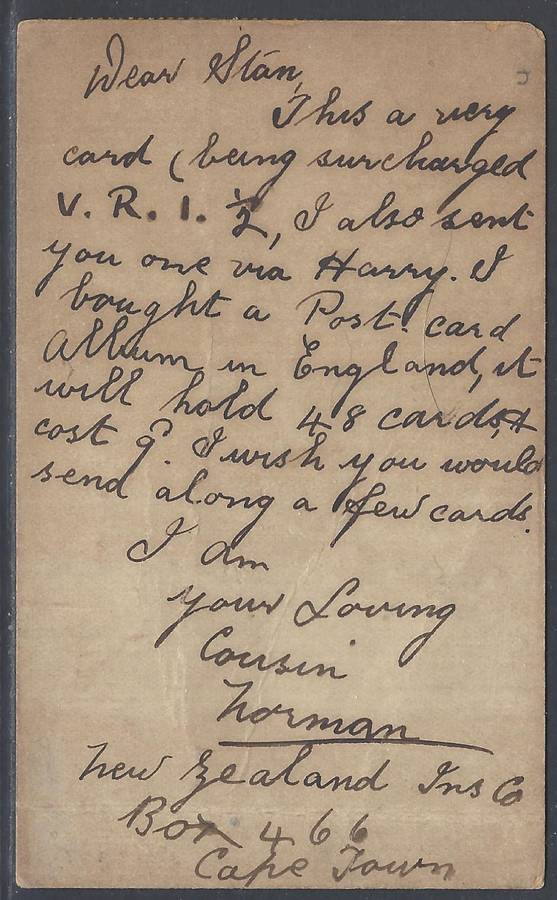 Dear Stan,
This a very
card (being surcharged
V. R. I. ½, I also sent
you one via Harry. I
bought a Post card
Album in England, it
will hold 48 cards, &
cost 9ᵈ. I wish you would
send along a few cards.
I am
your Loving
Cousin
Norman
New Zealand Ins Co
Box 466
Cape Town